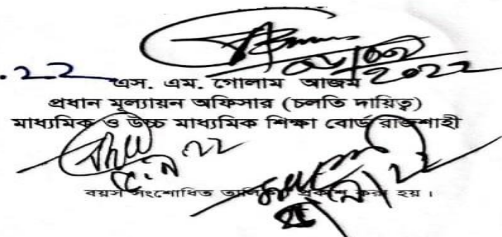 2022
.22
এস. এম. গোলাম আজম
প্রধান মূল্যায়ন অফিসার (চলতি দায়িত্ব)
মাধ্যমিক ও উচ্চ মাধ্যমিক শিক্ষা বোর্ড রাজশাহী
22
22
বয়স সংশোধিত তালিকা প্রকাশ করা হয়।